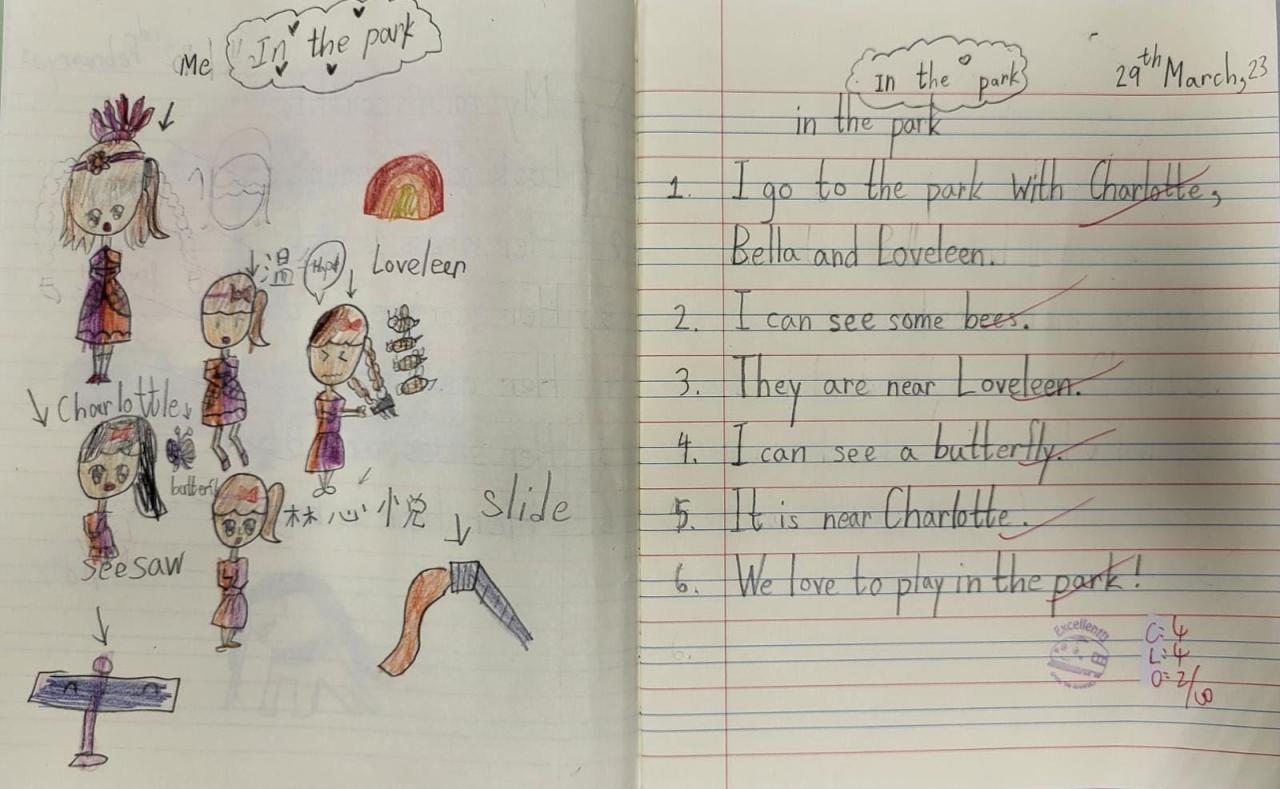 Me
In the park
温
Loveleen
Charlottle
butterfly
林心悦
小
seesaw
slide
In the park
29th March, 23
in the park
1. I go to the park with Charlotte,
Bella and Loveleen.
2. I can see some bees.
3. They are near Loveleen.
4. I can see a butterfly.
5. It is near Charlotte.
6. We love to play in the park!
Excellent!
C: 4
L: 4
O: 2/10